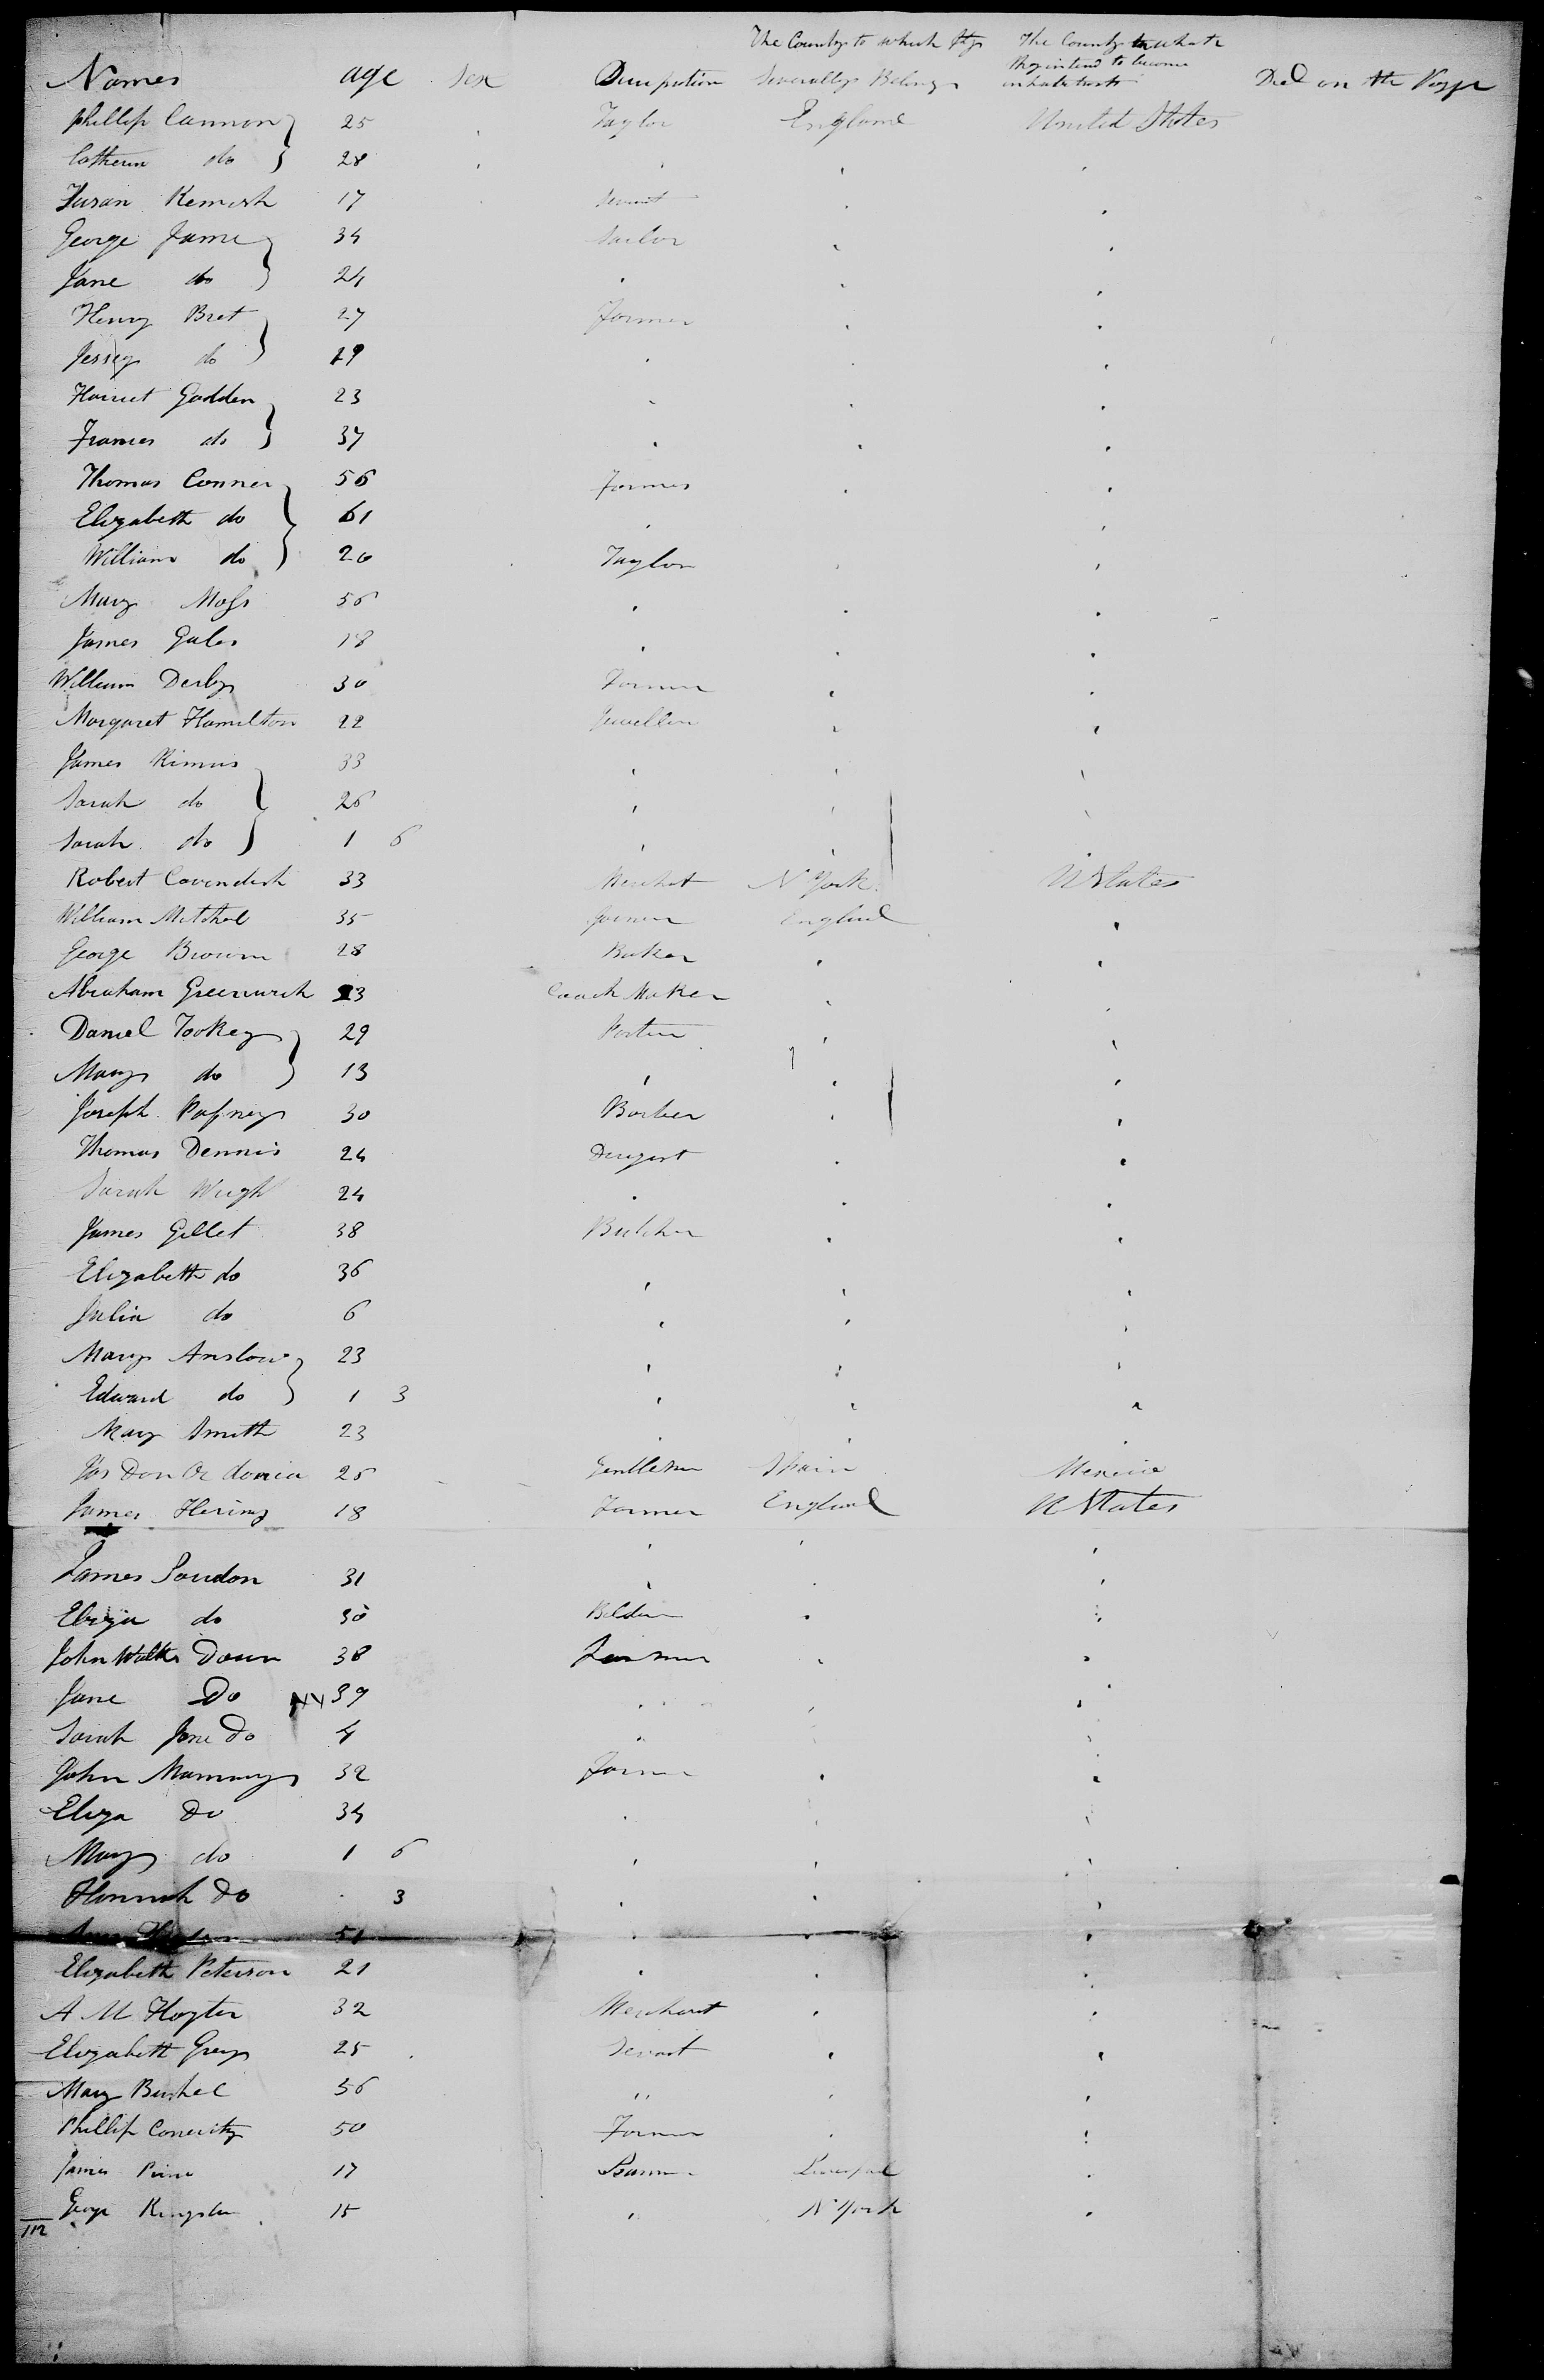 The Country to which they severally Belong
The Country to which they intend to become inhabitants
Names age Sex Occupation Died on the Voyge
Phillip Cannon 25 Taylor England United States
Catherin do 28
Susan Kemish 17 Servant
George Jame 34 Sailor
Jane do 24
Henry Bret 27 Farmer
Jessey do 29
Harriet Godden 23
Frances do 37
Thomas Conner 56 Farmer
Elizabeth do 61
William do 20 Taylor
Mary Moss 56
James Gales 18
William Derby 30 Farmer
Margaret Hamilton 22 Jeweller
James Rimus 33
Sarah do 26
Sarah do 1 6
Robert Cavendish 33 Merchat N York U States
William Mitchel 35 England
George Brown 28 Baker
Abraham Greenwich 23 Coach Maker
Daniel Tookey 29 Porter
Mary do 13
Joseph 30 Barber
Thomas Dennis 24 Drugist
Sarah Wright 24
James Gillet 38 Butcher
Elizabeth do 36
Julia do 6
Mary Anslow 23
Edward do 1 3
Mary Smith 23
Jos Don 26 Gentleman Spain Mexico
James Hering 18 Farmer England U States
James Loudon 31
Eliza do 30
John Walter Down 38 Farmer
Jane Do NY 39
Sarah Jane Do 4
John Mammary 32 Farmer
Eliza Do 34
Mary do 1 6
Hannah Do 3
51
Elizabeth Peterson 21
A M Hoyter 32 Merchant
Elizabeth Grey 25 Servant
Mary Bushel 56 "
Phillip 50 Farmer
James 17 Liverpool
George Kingston 15 N York
112